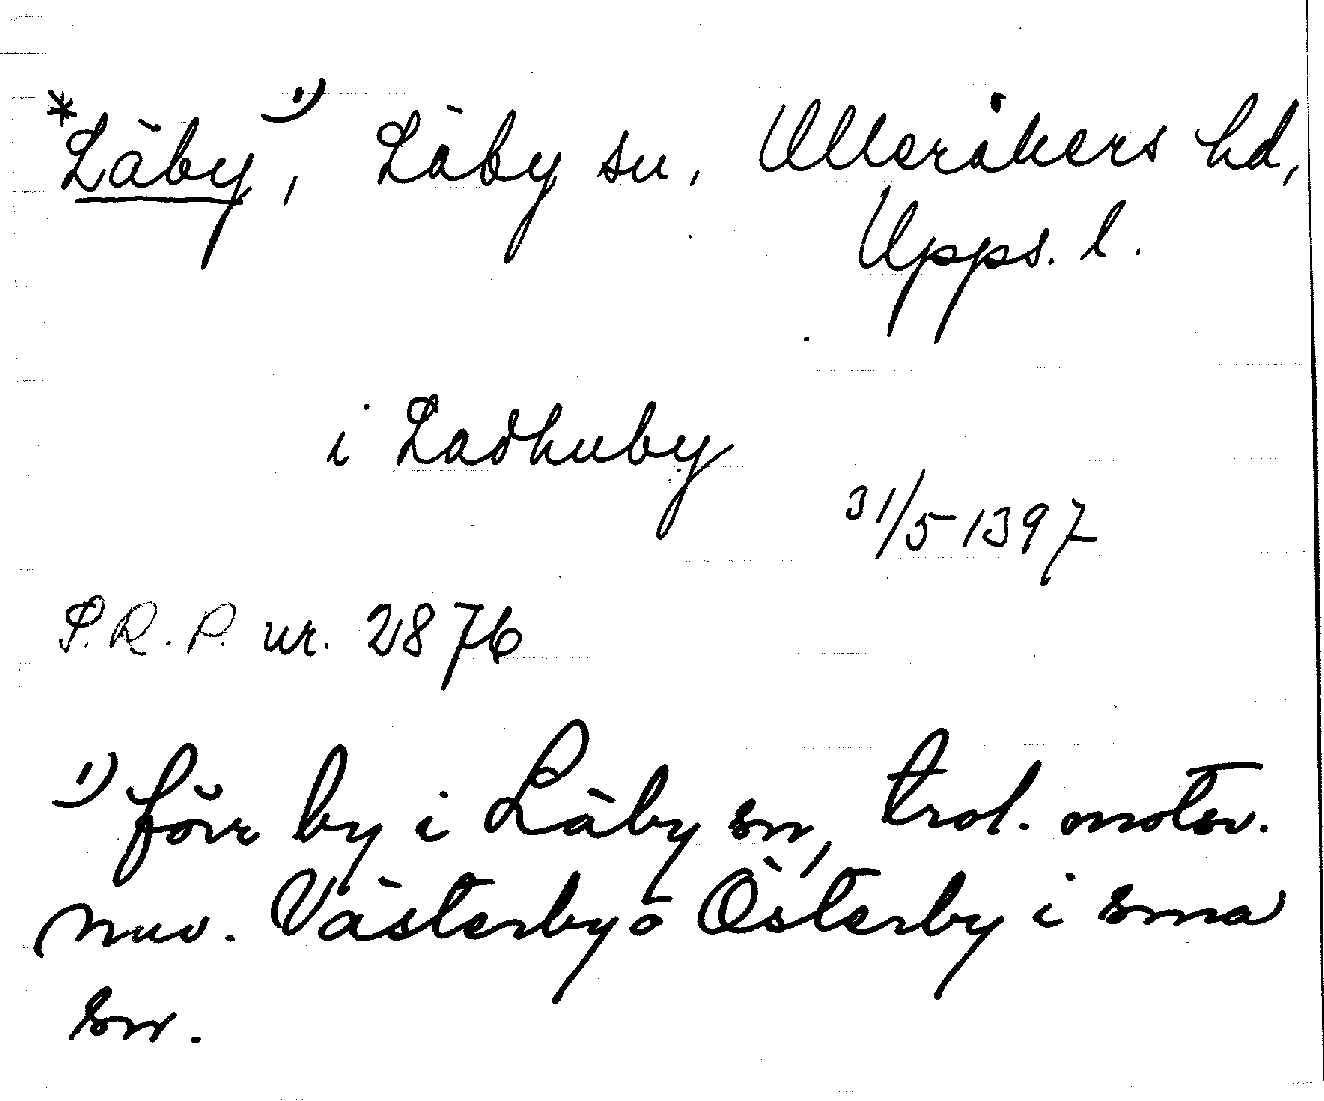 *Läby,¹⁾ Läby sn, Ulleråkers hd,
Upps. l.
i Ladhuby
31/5 1397
S.R.P. nr. 2876
¹⁾ förr by i Läby sn, trol. motsv.
nuv. Västerby o Österby i sma
sn.